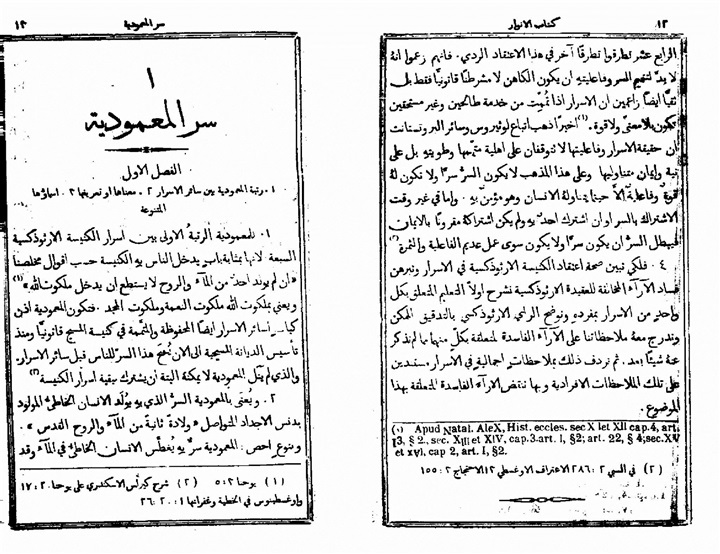 ١٢
كتاب الانوار
الرابع عشر تطرقوا تطرقًا آخر في هذا الاعتقاد الردي. فانهم زعموا انهُ
لا بدَّ لتتميم السر وفاعليتهِ ان يكون الكاهن لا مشرطنًا قانونيًّا فقط بل
تقيًّا ايضًا زاعمين ان الاسرار اذا تُممت من خدمة طالحين وغير مستحقين
تكون بلا معنًى ولا قوة. (١) اخيرًا ذهب اتباع لوثيروس وسائر البروتستانت
ان حقيقة الاسرار وفاعليتها لا تتوقفان على اهلية متممها وطويتهِ بل على
نية وإيمان متناوليها وعلى هذا المذهب لا يكون السرُّ سرًّا ولا تكون لهُ
قوة وفاعلية الَّا حينما يتناولهُ الانسان وهو مؤمن بهِ. وإما في غير وقت
الاشتراك بالسر او ان اشترك احدٌ بهِ ولم يكن اشتراكهُ مقرونًا بالايمان
فيبطل السرُّ ان يكون سرًّا ولا يكون سوى عمل عديم الفاعلية والثمرة (٢)
٤. فلكي نبين صحة اعتقاد الكنيسة الارثوذكسية في الاسرار ونبرهن
فساد الآراء المخالفة للعقيدة الارثوذكسية نشرح اولًا التعليم المتعلق بكل
واحدٍ من الاسرار بمفردهِ ونوضح الرأي الارثوذكسي بالتدقيق الممكن
وندرج معهُ ملاحظاتنا على الآراء الفاسدة المتعلقة بكلٍّ منها ما لم نذكر
عنهُ شيئًا بعد. ثم نردف ذلك بملاحظات اجمالية في الاسرار مستندين
على تلك الملاحظات الافرادية وبها ننقض الآراء الفاسدة المتعلقة بهذا
الموضوع.
(١) Apud Natal. AleX, Hist. eccles. sec X let XII cap.4, art.
13, § 2., sec. XIII et XIV, cap.3.art. I, §2; art. 22, § 4;sec.XV
et xvI, cap 2, art. I, §2.
(٢) في السبي ٢: ٢٨٦ الاعتراف الاوغسطي ١٢ الاحتجاج ٢: ١٥٥
سر المعمودية
١٣
١
سر المعمودية
الفصل الاول
١. رتبة المعمودية بين سائر الاسرار ٢. معناها او تعريفها ٣. اسماؤها
المتنوعة
١. للمعمودية الرتبةُ الاولى بين اسرار الكنيسة الارثوذكسية
السبعة لانها بمثابة باب يدخل الناس بهِ الكنيسة حسب اقوال مخلصنا
«ان لم يولد احدٌ من المآء والروح لا يستطع ان يدخل ملكوت الله» (١)
ويعني بملكوت الله ملكوت النعمة وملكوت المجد. فتكون المعمودية اذن
كباب لسائر الاسرار ايضًا المحفوظة والمتممة في كنيسة المسيح قانونيًا ومنذ
تأسيس الديانة المسيحية الى الان يُمنَح هذا السرُّ للناس قبل سائر الاسرار.
والذي لم ينل المعمودية لا يمكنهُ البتة ان يشترك ببقية اسرار الكنيسة (٢)
٢. ويُعنَى بالمعمودية السرُّ الذي بهِ يولَد الانسان الخاطئُ المولود
بدنس الاجداد المتواصل «ولادة ثانيةً من المآء والروح القدس»
وبنوع اخص: المعمودية سرٌّ بهِ يُغطَّس الانسان الخاطئُ في المآء وقد
(١) يوحنا ٣: ٥ (٢) شرح كيرلُّس الاسكندري على يوحنا ٢٠: ١٧
واوغسطينوس في الخطية وغفرانها ١: ٢٠: ٢٦